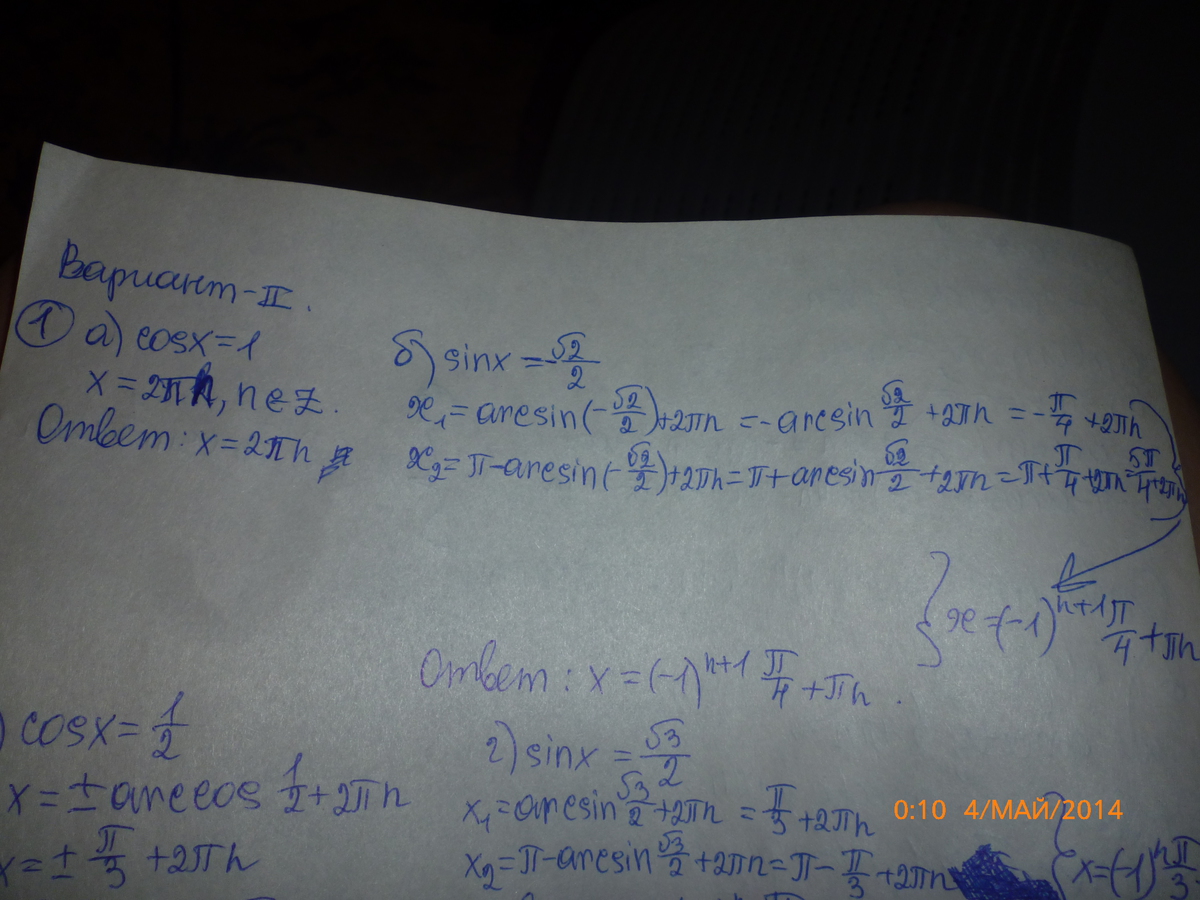 Вариант-II.
1 а) cosx=1
x=2πn, n∈Z.
Ответ: x=2πn
б) sinx=-√2/2
x₁=arcsin(-√2/2)+2πn=-arcsin √2/2+2πn=-π/4+2πn
x₂=π-arcsin(-√2/2)+2πn=π+arcsin √2/2+2πn=π+π/4+2πn=5π/4+2πn
x=(-1)ⁿ⁺¹ π/4+πn
Ответ: x=(-1)ⁿ⁺¹ π/4+πn.
) cosx=1/2
x=±arccos 1/2+2πn
x=±π/3+2πn
г) sinx=√3/2
x₁=arcsin √3/2+2πn=π/3+2πn
x₂=π-arcsin √3/2+2πn=π-π/3+2πn
x=(-1)ⁿ π/3
0:10 4/МАЙ/2014